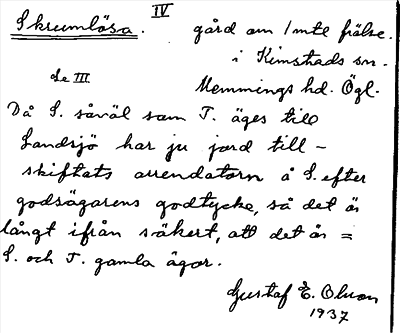 IV
Skrumlösa. gård om 1 mtl frälse.
i Kimstads sn.
Se III Memmings hd. Ögl.
Då S. såväl som T. äges till
Landsjö har ju jord till-
skiftats arrendatorn å S. efter
godsägarens godtycke, så det är
långt ifrån säkert, att det är =
S. och T. gamla ägor.
Gustaf E. Olson
1937